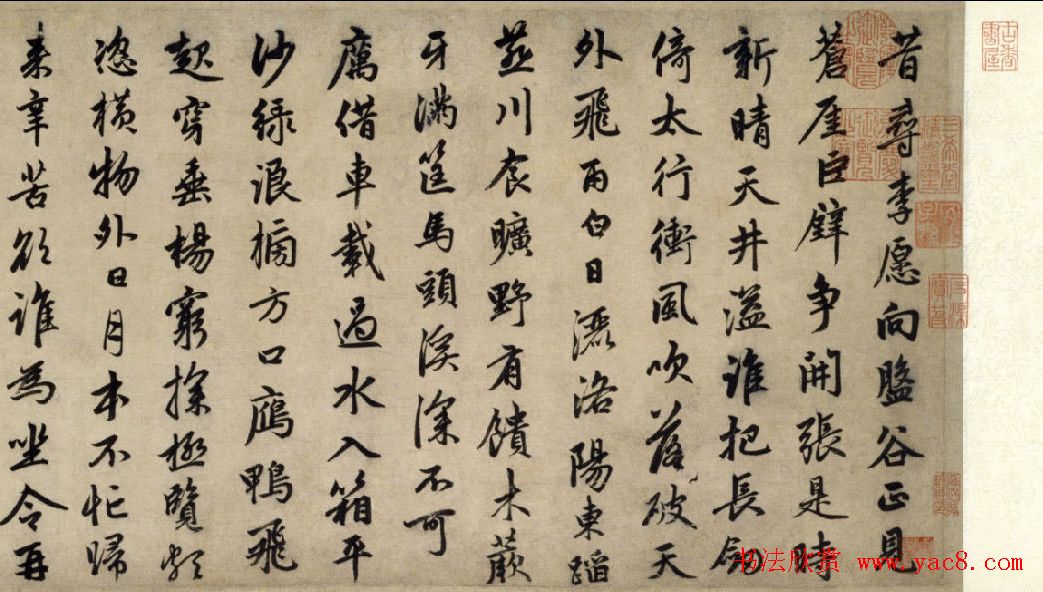 昔尋李愿向盤谷正見
蒼厓巨壁争開張是時
新晴天井溢誰把長劍
倚太行衝風吹落破天
外飛雨白日灑洛陽東蹈
燕川食曠野有饋木蕨
牙滿筐馬頭溪深不可
厲借車載過水入箱平
沙綠浪搒方口鴈鴨飛
起穿垂楊窮探極覽頗
恣橫物外日月本不忙歸
来辛苦欲誰為坐令再
书法欣赏 www.yac8.com